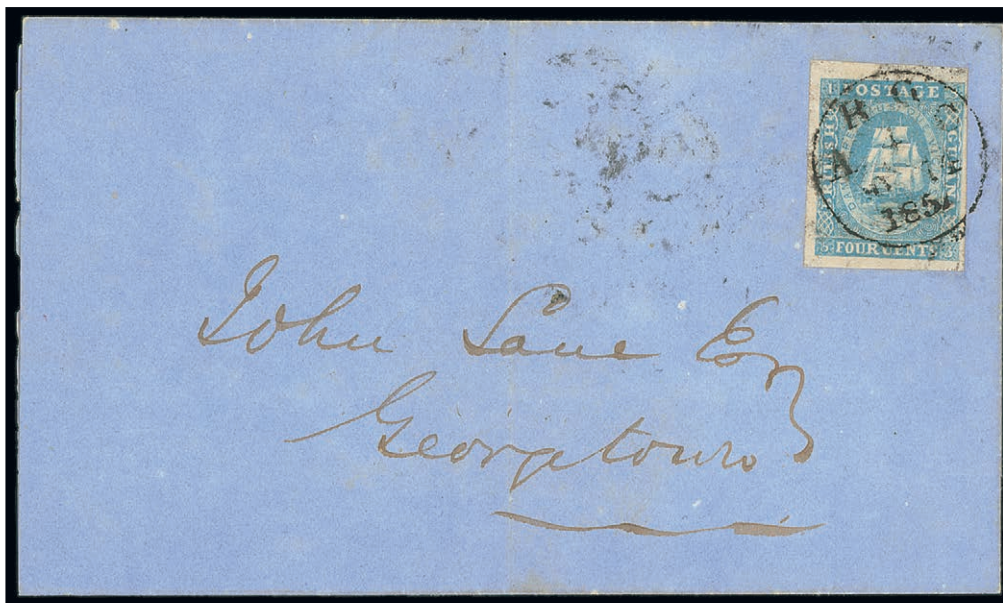 POSTAGE
BRITISH
GUIANA
FOUR CENTS
John Lane Esq
Georgetown